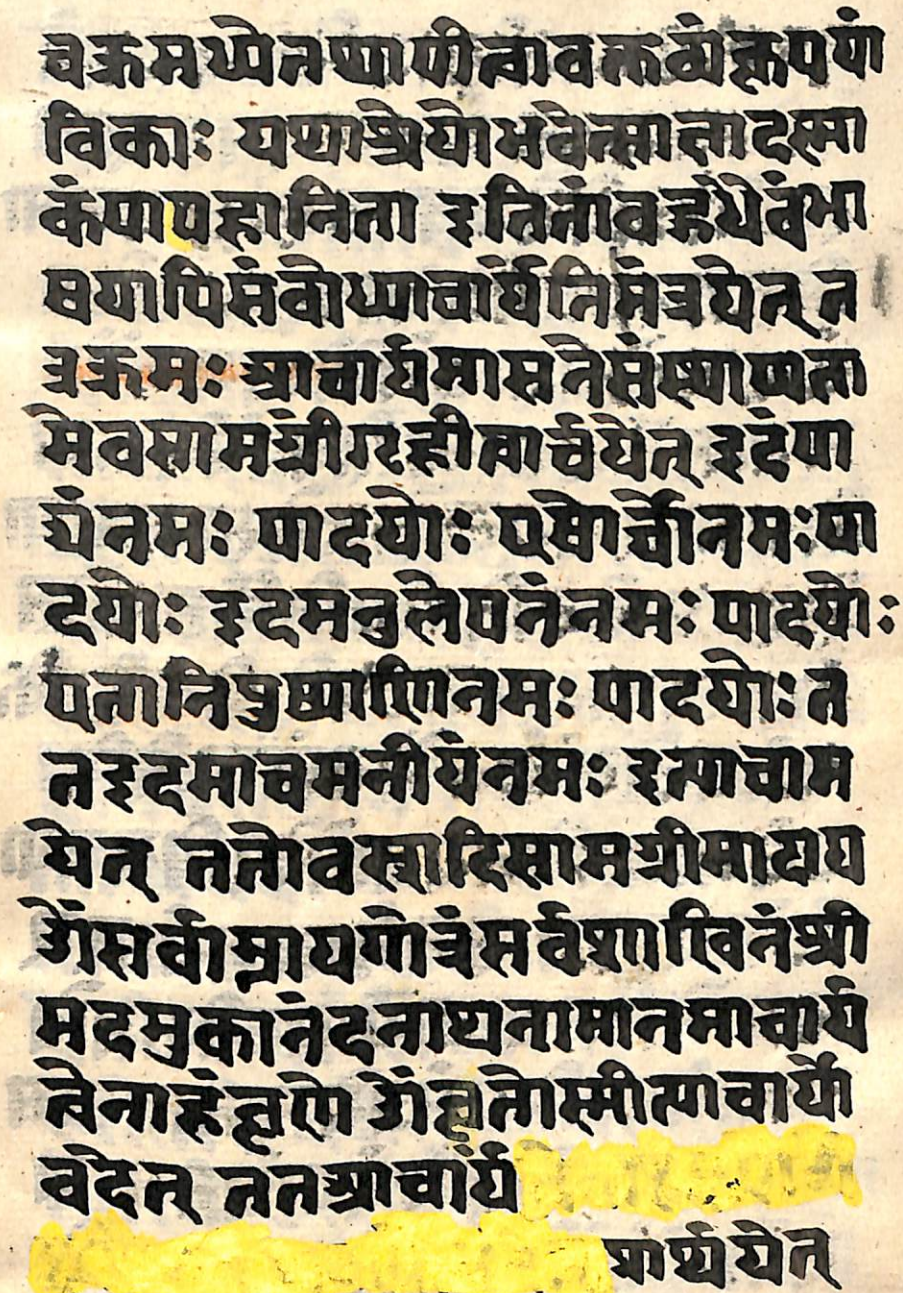 चक्रमथ्येतथ्यापीत्वावक्तव्यंकृपयां
विकाः यथाश्रेयोभवेत्साक्षादस्मा
कंपापहानिता इतितांवद्देधेवंभा
षयापिसंवोध्याचार्यंनिमंत्रयेत् त
त्रक्रमः आचार्यमासनेसंस्थाप्यता
मेवसामग्रींगृहीत्वार्चयेत् इदंपा
द्यंनमः पादयोः एषोर्चोनमःपा
दयोः इदमनुलेपनंनमः पादयोः
एतानिपुष्पाणिनमः पादयोः त
तइदमाचमनीयंनमः इत्याचाम
येत् ततोवस्त्रादिसामग्रीमादाय
ओंसर्वाम्नायगोत्रंसर्वशाखिनंश्री
मदमुकानंदनाथनामानमाचार्य
त्वेनाहंवृणे ओंवृतोस्मीत्याचार्यो
वदेत् ततआचार्यं
प्रार्थयेत्